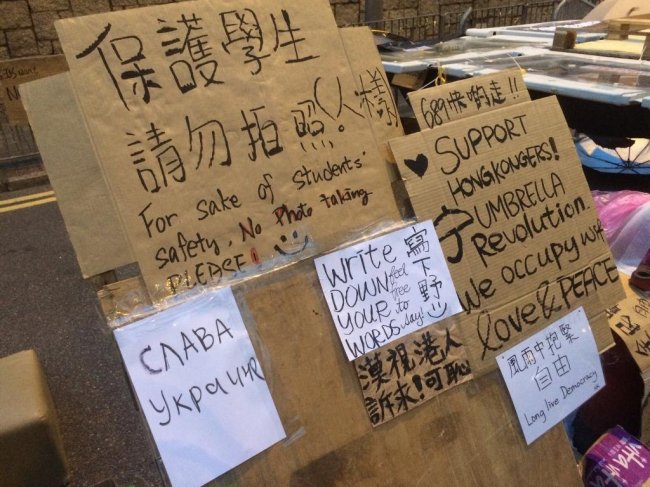 保護學生
請勿拍照(人樣)
For sake of students'
safety, No Photo taking
PLEASE!
689快啲走!!
SUPPORT
HONGKONGERS!
UMBRELLA
Revolution
We occupy with
love & PEACE
Write
DOWN
YOUR
WORDS
feel
free
to
say!
寫下野
漠視港人
訴求!可恥
СЛАВА
Україні
風雨中抱緊
自由
Long live Democracy
vita